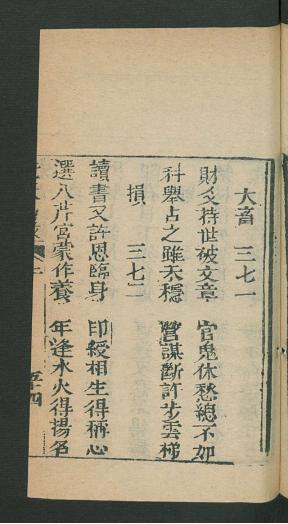 大畜 三七一
財爻持世破文章 官鬼休愁總不如
科舉占之雖未穩 營謀斷許步雲梯
損 三七二
讀書又許恩臨身 印綬相生得稱心
選入芹宮蒙作養 年逢水火得揚名
五四